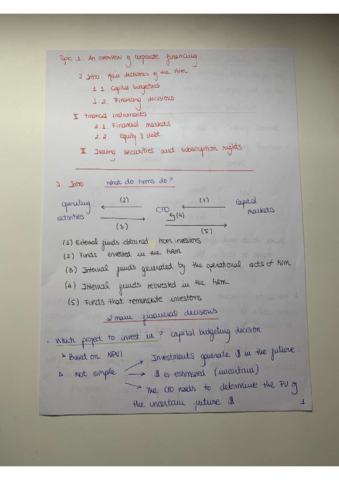 Topic 1. An overview of corporate financing
I Intro: Main decisions of the firm
1.1. Capital budgeting
1.2. Financing decisions
II Financial instruments
2.1. Financial markets
2.2. Equity & debt
III Issuing securities and subscription rights
I Intro What do firms do?
operating (2) (1) capital
activities CFO markets
(3) (4) (5)
(1) External funds obtained from investors
(2) Funds invested in the firm
(3) Internal funds generated by the operational acts of firm
(4) Internal funds reinvested in the firm
(5) Funds that remunerate investors
2 main financial decisions
Which project to invest in? capital budgeting decision
Based on NPV!
Not simple
Investments generate $ in the future
$ is estimated (uncertain)
The CFO needs to determine the PV of
the uncertain future $
1